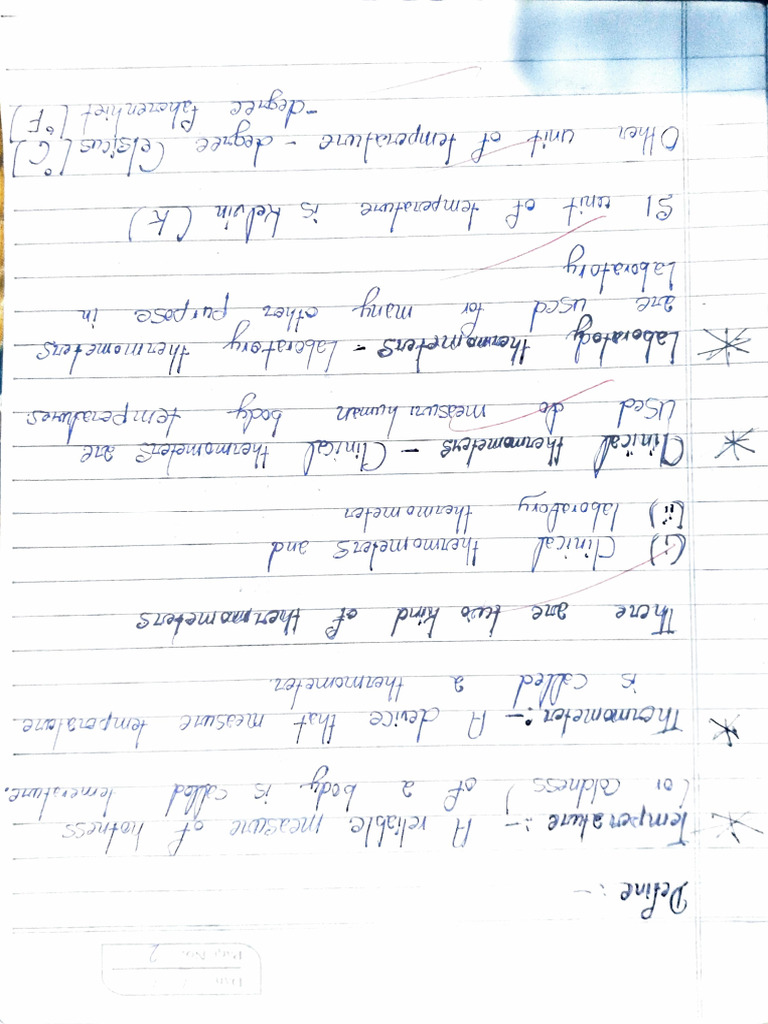 Date
Page No. 2
Define :-
* Temperature :- A reliable measure of hotness
(or coldness) of a body is called temerature.
* Thermometer :- A device that measure temperature
is called a thermometer.
There are two kind of thermometers
(i) Clinical thermometers and
(ii) laboratory thermometer
* Clinical thermometers - Clinical thermometers are
used do measuri human body temperatures
* Laboratody thermometers - Laboratory thermometers
are used for many other purpose in
Laboratory
SI unit of temperature is kelvin (K)
Other unit of temperature - degree Celsicus (°C)
- degree fahorenhiet (°F)